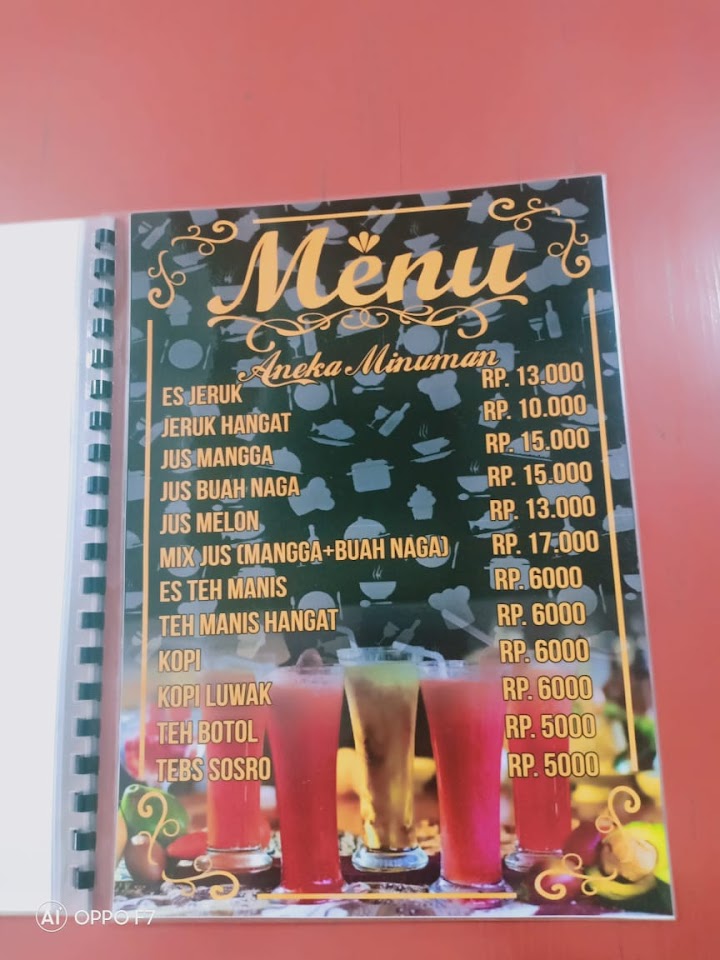 Menu
Aneka Minuman
ES JERUK RP. 13.000
JERUK HANGAT RP. 10.000
JUS MANGGA RP. 15.000
JUS BUAH NAGA RP. 15.000
JUS MELON RP. 13.000
MIX JUS (MANGGA+BUAH NAGA) RP. 17.000
ES TEH MANIS RP. 6000
TEH MANIS HANGAT RP. 6000
KOPI RP. 6000
KOPI LUWAK RP. 6000
TEH BOTOL RP. 5000
TEBS SOSRO RP. 5000
Ai OPPO F7